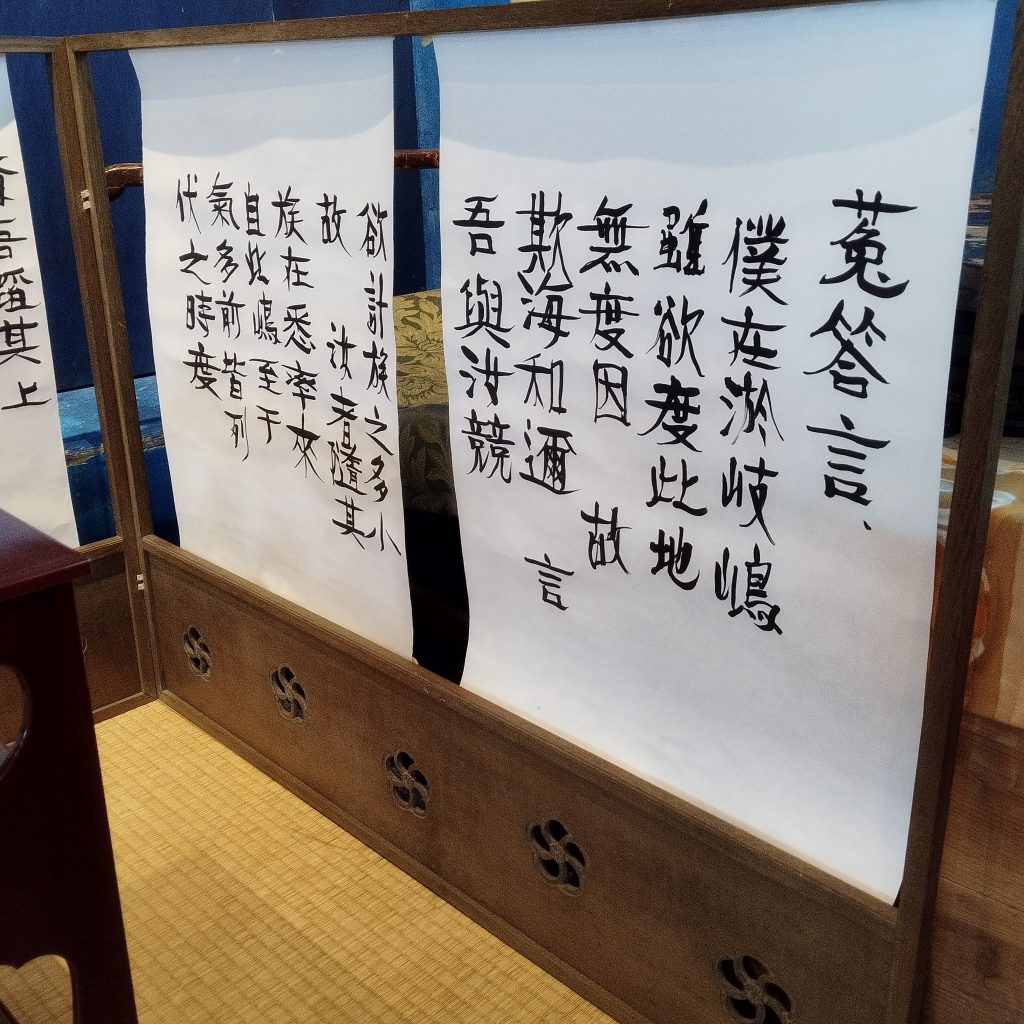 菟答言、
僕在淤岐嶋
雖欲度此地
無度因 故
欺海和邇 言
吾與汝競
欲計族之多小
故 汝者隨其
族在悉率來
自此嶋至于
氣多前皆列
伏之時度
吾蹈其上